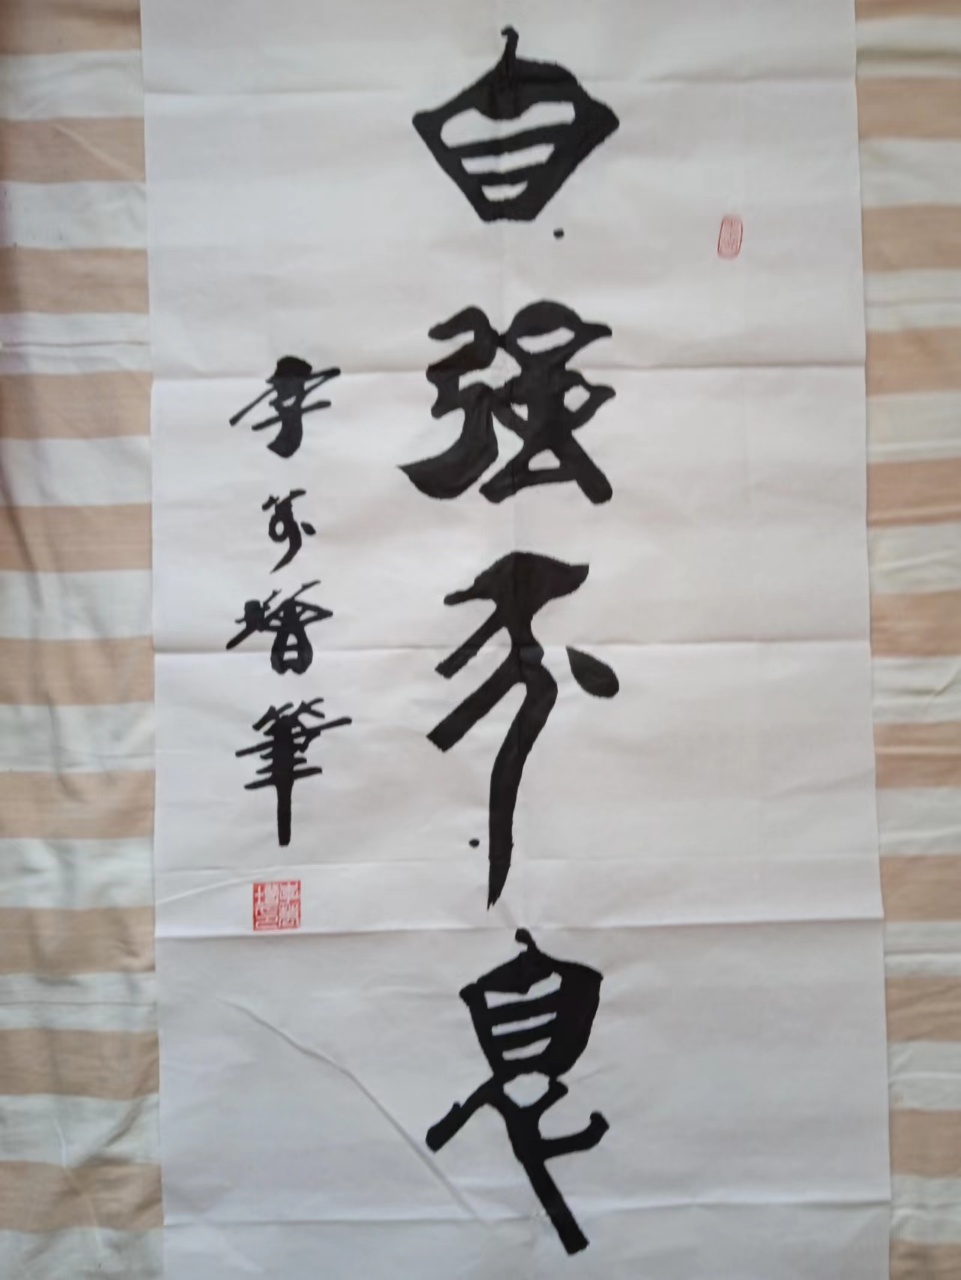 自强不息
李萬增筆